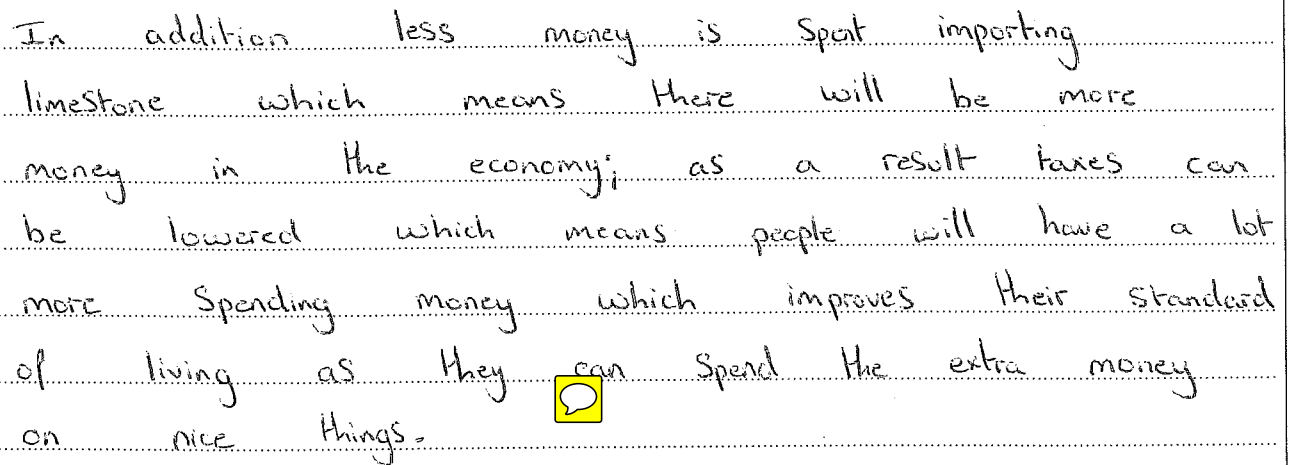 In addition less money is spent importing
limestone which means there will be more
money in the economy; as a result taxes can
be lowered which means people will have a lot
more spending money which improves their standard
of living as they can spend the extra money
on nice things.